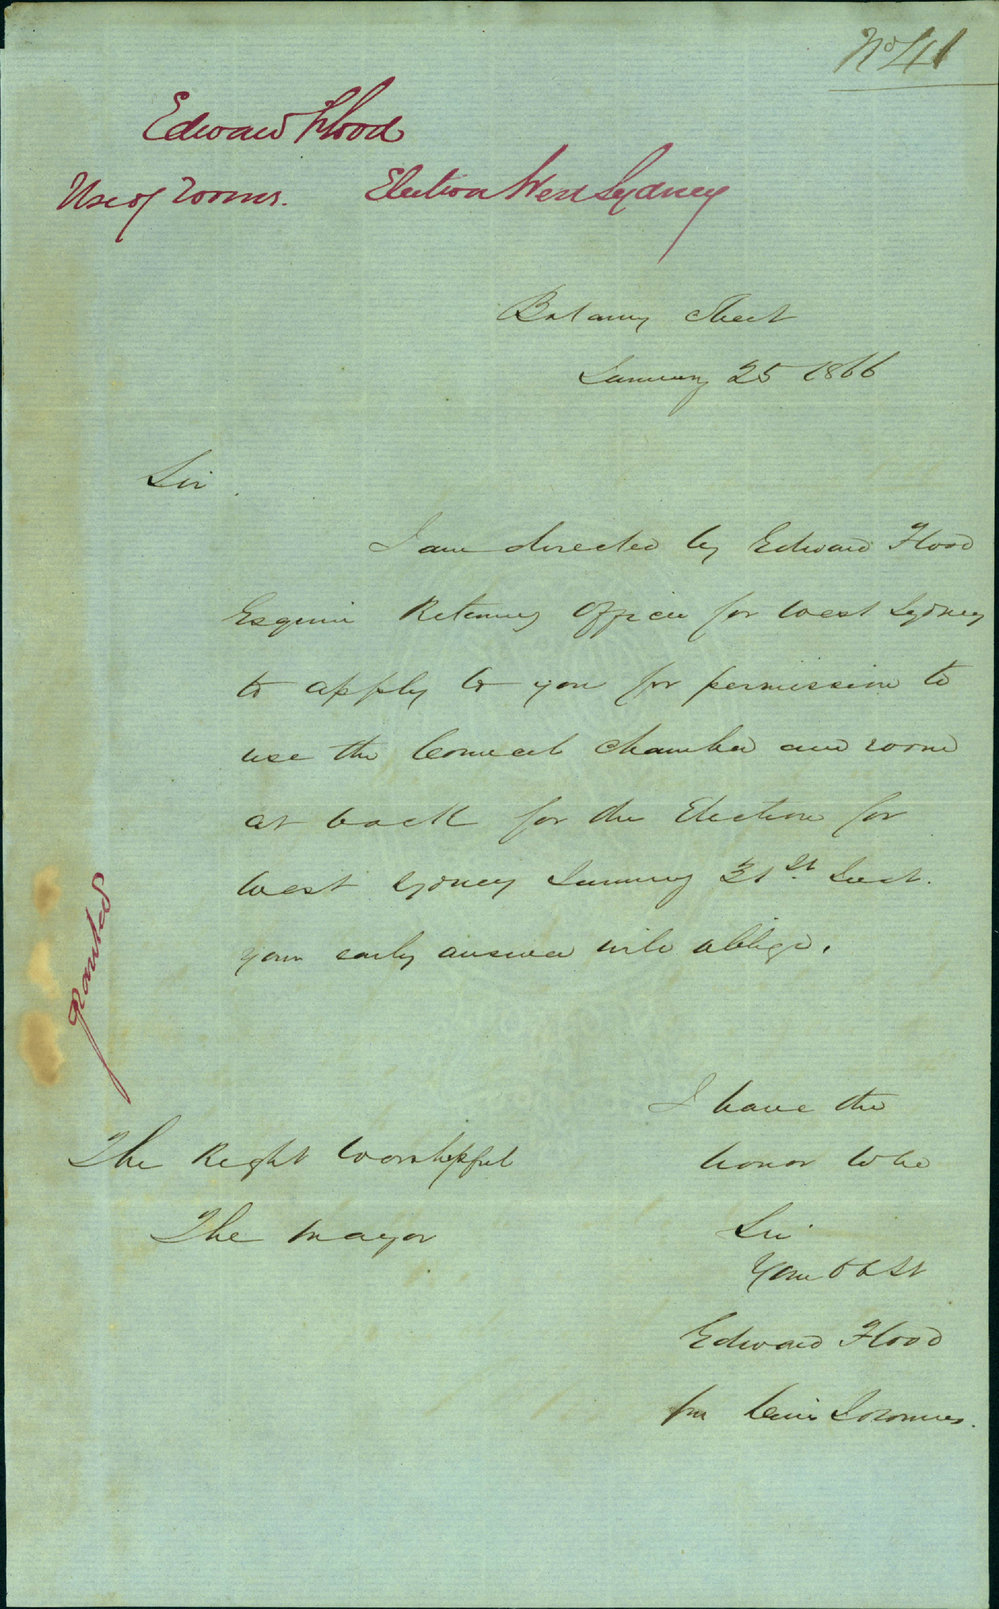 No 41
Edward Flood
Use of rooms. Election West Sydney
Botany Street
January 25 1866
Sir
I am directed by Edward Flood
Esquire Returning Officer for West Sydney
to apply to you for permission to
use the Council Chamber and room
at back for the Election for
West Sydney January 31st Inst.
your early answer will oblige.
granted
I have the
honor to be
Sir
Your obt St
Edward Flood
per
The Right Worshipful
The Mayor